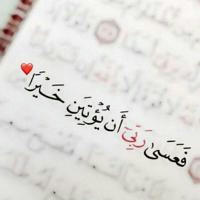 فَعَسَىٰ رَبِّىٓ أَن يُؤْتِيَنِ خَيْرًا